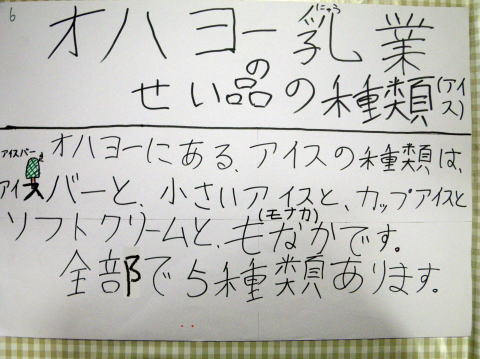 6
オハヨー乳業
にゅう
の
せい品の種類(アイス)
オハヨーにある、アイスの種類は、
アイスバー
アイスバーと、小さいアイスと、カップアイスと
ソフトクリームと、もなかです。
(モナカ)
全部で5種類あります。